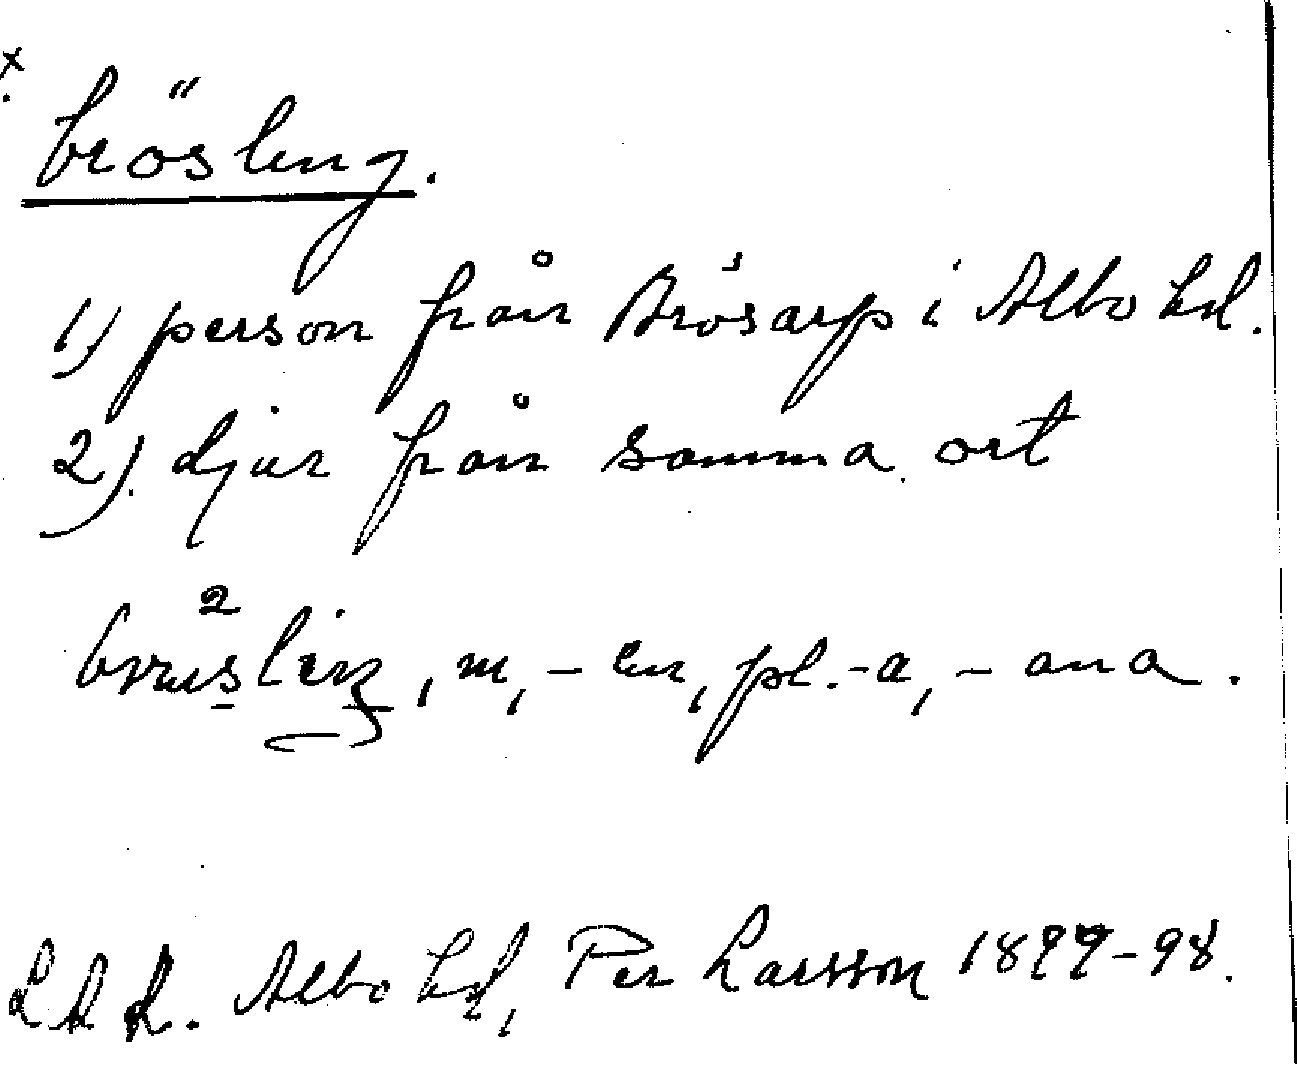 x
brösling.
1) person från Brösarp i Albo hd.
2) djur från samma ort
m, -en, pl. -a, -ana.
Albo hd, Per Larsson 1897-98.